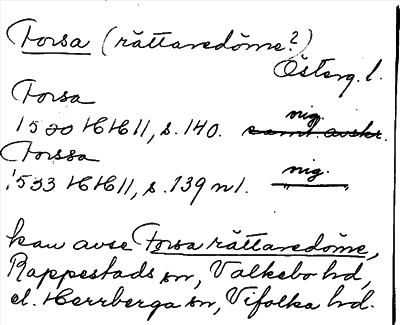 Forsa (rättaredöme?)
Österg. l.
Forsa
1530 HH 11, s. 140. nig. samt. avskr.
Forssa
1533 HH 11, s. 139 n 1. nig.
kan avse Forsa rättaredöme,
Rappestads sn, Valkebo hd,
el. Herrberga sn, Vifolka hd.